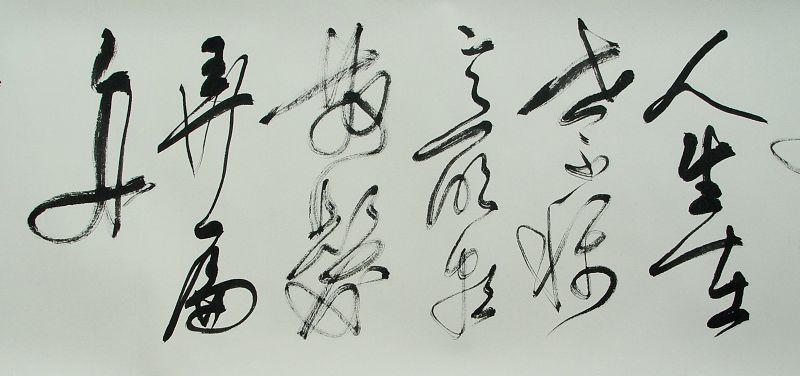 人生在
世不稱
意明朝
散髮
弄扁
舟